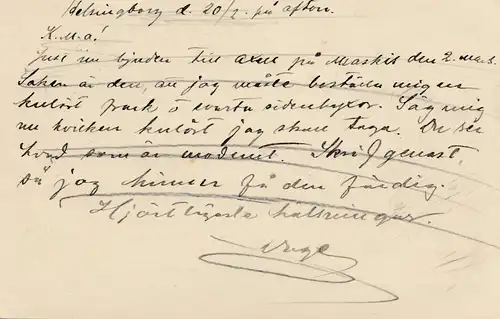 Helsingborg d. 20/2. på afton.
K.M.a!
Just nu bjuden till på Maskis den 2. mars.
Saken är den, att jag måste beställa mig en
kulört frack o svarta sidenbyxor. Säg mig
nu hvilken kulört jag skall taga. Du ser
hvad som är modernt. Skrif genast,
så jag hinner få den färdig.
Hjärtligaste hälsningar.